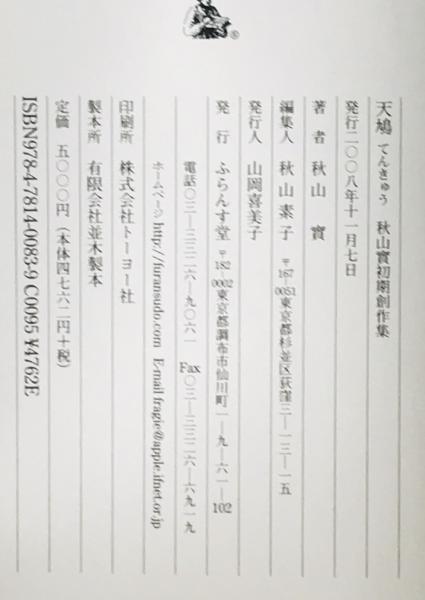 天鳩 てんきゅう 秋山實初期創作集
発行二〇〇八年十一月七日
著者 秋山實
編集人 秋山素子 〒167-0051東京都杉並区荻窪三―一三―一五
発行人 山岡喜美子
発行 ふらんす堂 〒182-0002東京都調布市仙川町一―九―六一―102
電話〇三―三三二六―九〇六一 Fax〇三―三三二六―六九一九
ホームページ http://furansudo.com E-mail fragie@apple.ifnet.or.jp
印刷所 株式会社トーヨー社
製本所 有限会社並木製本
定価 五〇〇〇円（本体四七六二円＋税）
ISBN978-4-7814-0083-9 C0095 ¥4762E
®